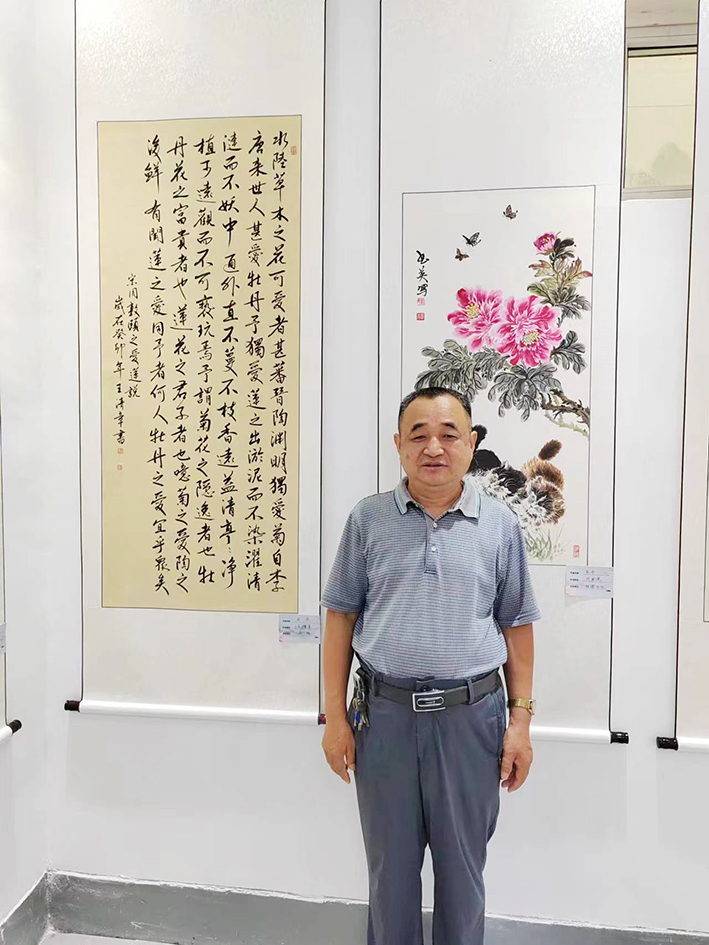 水陸草木之花可愛者甚蕃晉陶淵明獨愛菊自李
唐来世人甚愛牡丹予獨愛蓮之出淤泥而不染濯清
漣而不妖中通外直不蔓不枝香遠益清亭〻净
植可遠觀而不可褻玩焉予謂菊花之隱逸者也牡
丹花之富貴者也蓮花之君子者也噫菊之愛陶之
後鮮有聞蓮之愛同予者何人牡丹之愛宜乎衆矣
宋周敦頤之愛蓮説
歲在癸卯年王清章書
英写